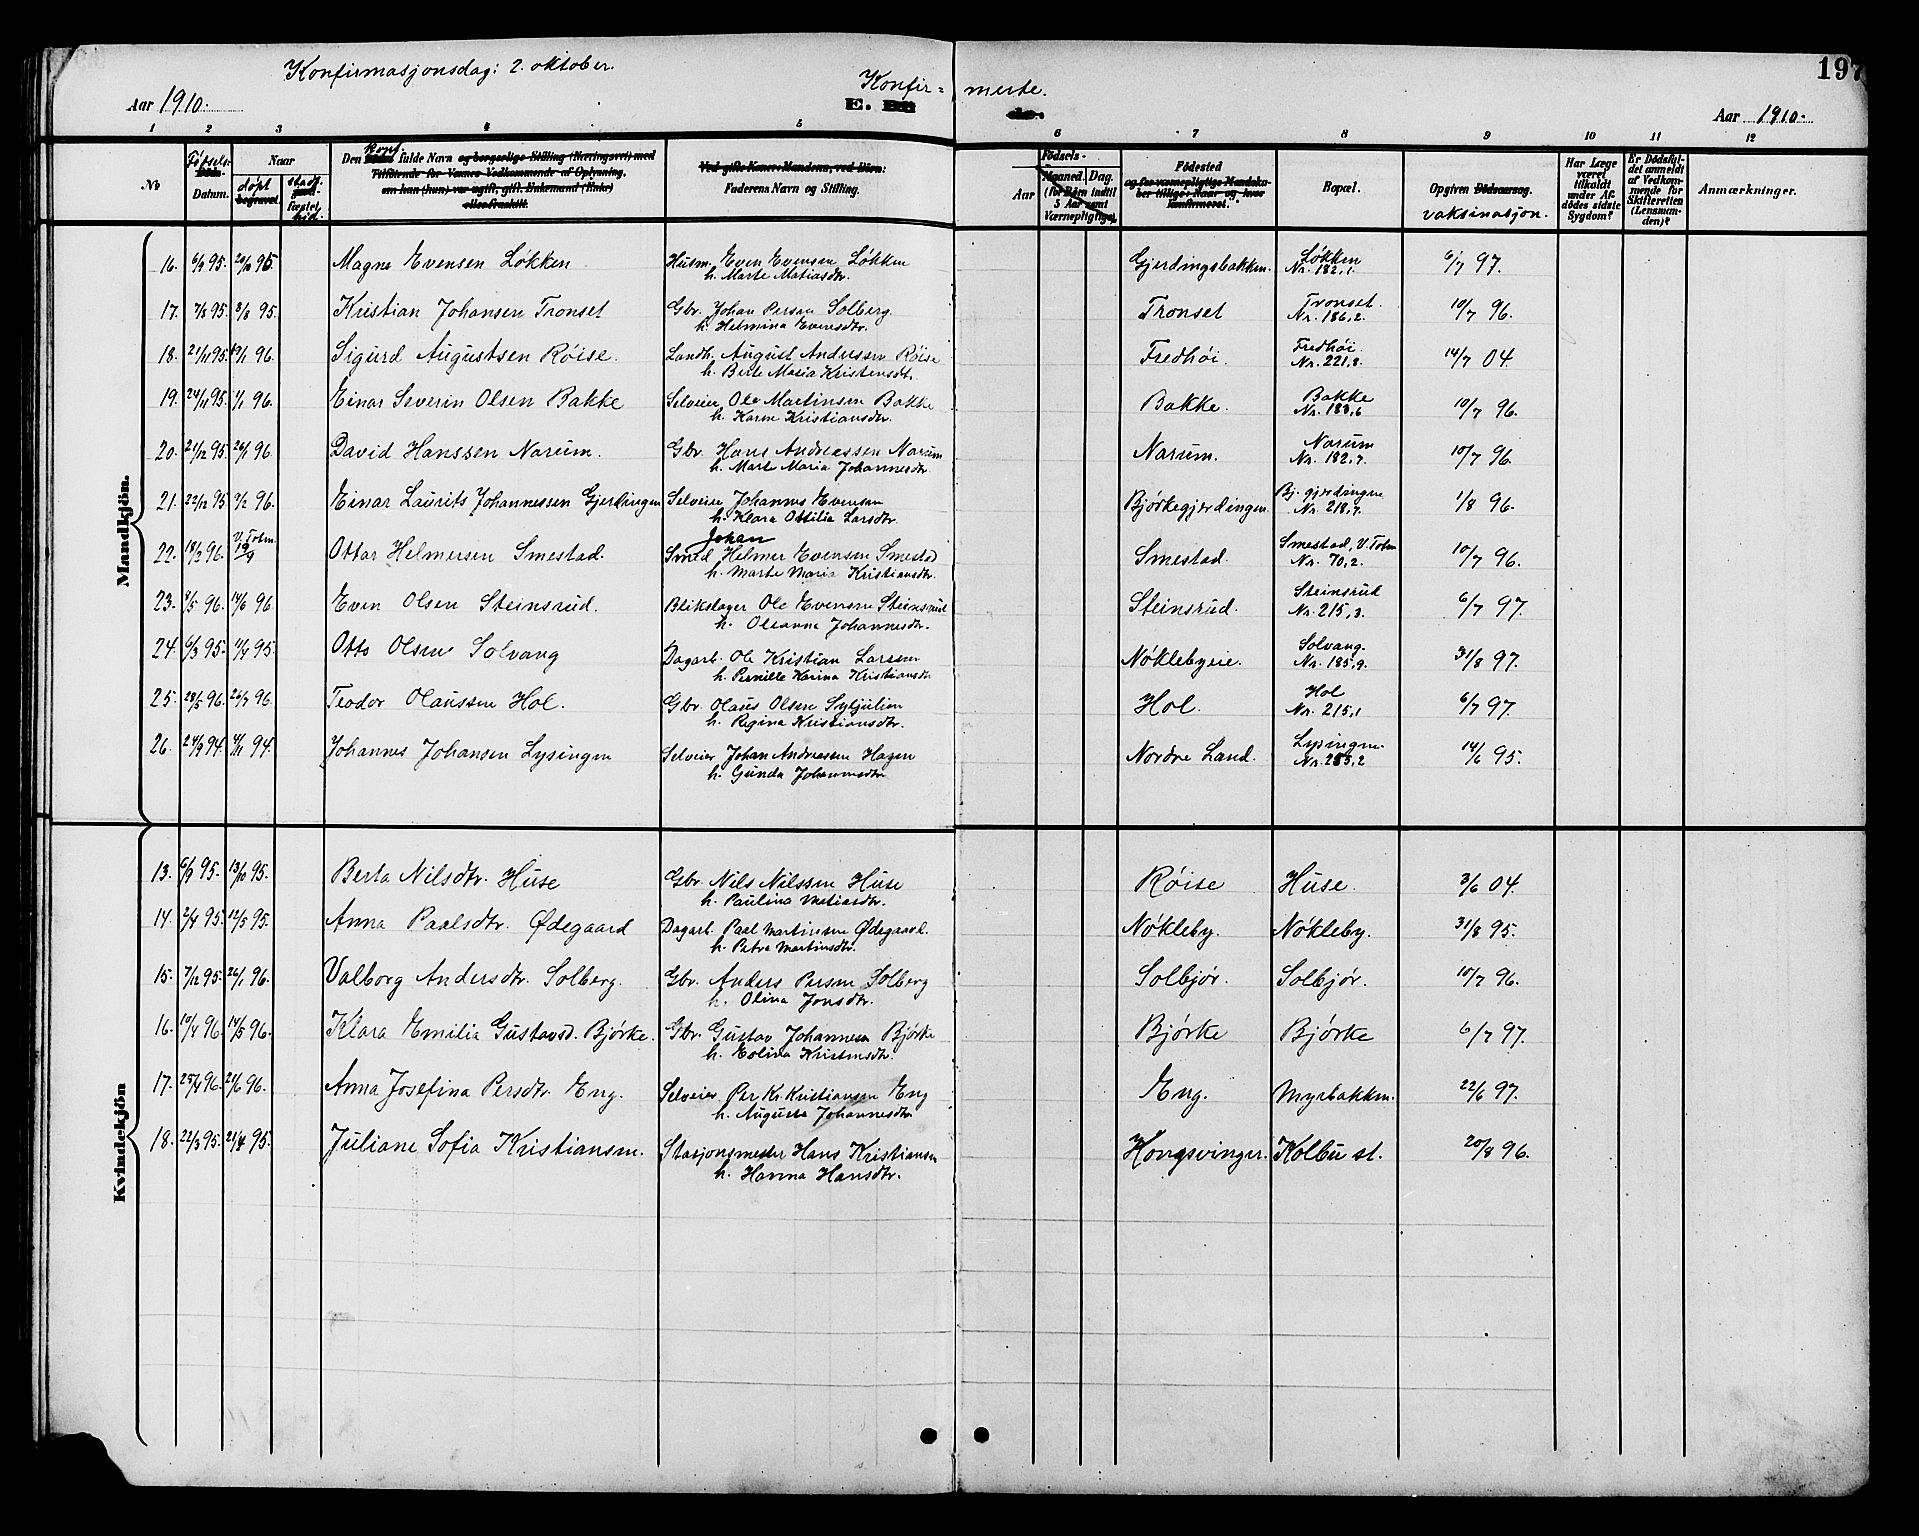 Konfirmasjonsdag: 2. oktober.
197
Aar 1910. E. Konfir= merte. Aar 1910.
1 2 3 4 5 6 7 8 9 10 11 12
No Fødsels-Datum. Naar døpt Den Konf fulde Navn Faderens Navn og Stilling. Aar Fødsels- Fødested Bopæl. Opgiven vaksinasjon. Har Læge været tilkaldt under Afdødes sidste Sygdom? Er Dødsfaldet anmeldt af Vedkommende for Skifteretten (Lensmanden)? Anmærkninger.
Mandkjön.
16. 6/9 95. 20/10 95. Magne Evensen Løkken Husm. Even Evensen Løkken Gjerdingsbakken. Løkken 6/7 97.
h. Marte Matiasdtr. Nr. 182,1.
17. 7/8 95. Kristian Johansen Tronset Gbr. Johan Persen Solberg Tronset Tronset. 10/7 96.
h. Helmina Evensdtr. Nr. 186,2.
18. 21/11 95. 19/1 96. Sigurd Augustsen Røise. Landh. August Andersen Røise Fredhøi. Fredhøi. 14/7 04.
h. Berte Maria Kristensdt. Nr. 221,8.
19. 24/11 95. 1/1 96. Einar Severin Olsen Bakke Selveier Ole Martinsen Bakke Bakke. Bakke 10/7 96.
h. Karen Kristiansdtr. Nr. 183,6
20. 21/12 95. 26/1 96. David Hanssen Narum. Gbr. Hans Andreassen Narum Narum. Narum 10/7 96.
h. Marte Maria Johannesdtr Nr. 182,7.
21. 22/12 95. 9/2 96. Einar Laurits Johannessen Gjerdingen Selveier Johannes Evensen Bjørkegjerdingen Bj. gjerdingen 1/8 96.
h. Klara Ottilia Larsdtr. Nr. 218,7.
V. Totn. Johan
22. 18/2 96. 19/4 Ottar Helmersen Smestad. Smed Helmer Evensen Smestad Smestad. Smestad, V. Totn 10/7 96.
h. Marte Maria Kristiansdtr. Nr. 70,2.
23. 9/5 96. 14/6 96. Even Olsen Steinsrud. Blikslager Ole Evensen Steinsrud Steinsrud. Steinsrud 6/7 97.
h. Oleanna Johannesdtr. Nr. 215,3.
24. 6/3 95. 11/4 95. Otto Olsen Solvang Dagarb. Ole Kristian Larssen Nøklebyeie. Solvang. 31/8 97.
h. Pernille Karina Kristiansdtr Nr. 185,9.
25. 28/5 96. 26/7 96. Teodor Olaussen Hol. Gbr. Olaus Olsen Syljulien Hol. Hol 6/7 97.
h. Regina Kristiansdtr. Nr. 215,1
26. 24/9 94. 4/11 94. Johannes Johansen Lysingen Selveier Johan Andreassen Hagen Nordre Land. Lysingen. 14/6 95.
h. Gunda Johannesdtr Nr. 255,2
Kvindekjön
13. 6/9 95. 13/10 95. Berta Nilsdtr. Huse Gbr. Nils Nilssen Huse Røise Huse. 3/6 04.
h. Paulina Matiasdtr.
14. 2/4 95. 12/5 95. Anna Paalsdtr. Ødegaard Dagarb. Paal Martinsen Ødegaard. Nøkleby. Nøkleby. 31/8 95.
h. Petra Martinsdtr.
15. 7/12 95. 26/1 96. Valborg Andersdtr. Solberg. Gbr. Anders Persen Solberg Solbjør. Solbjør. 10/7 96.
h. Olina Jonsdtr.
16. 10/4 96. 14/5 96. Klara Emilia Gustavsd. Bjørke. Gbr. Gustav Johannesen Bjørke Bjørke Bjørke 6/7 97.
h. Eolina Kristensdtr.
17. 25/4 96. 21/6 96. Anna Josefina Persdtr. Eng. Selveier Per Kr. Kristiansen Eng Eng. Myrbakken. 22/6 97.
h. Augusta Johannesdtr
18. 22/3 95. 21/4 95. Juliane Sofia Kristiansen. Stasjonsmester Hans Kristiansen Kongsvinger. Kolbu st. 20/8 96.
h. Hanna Hansdtr.